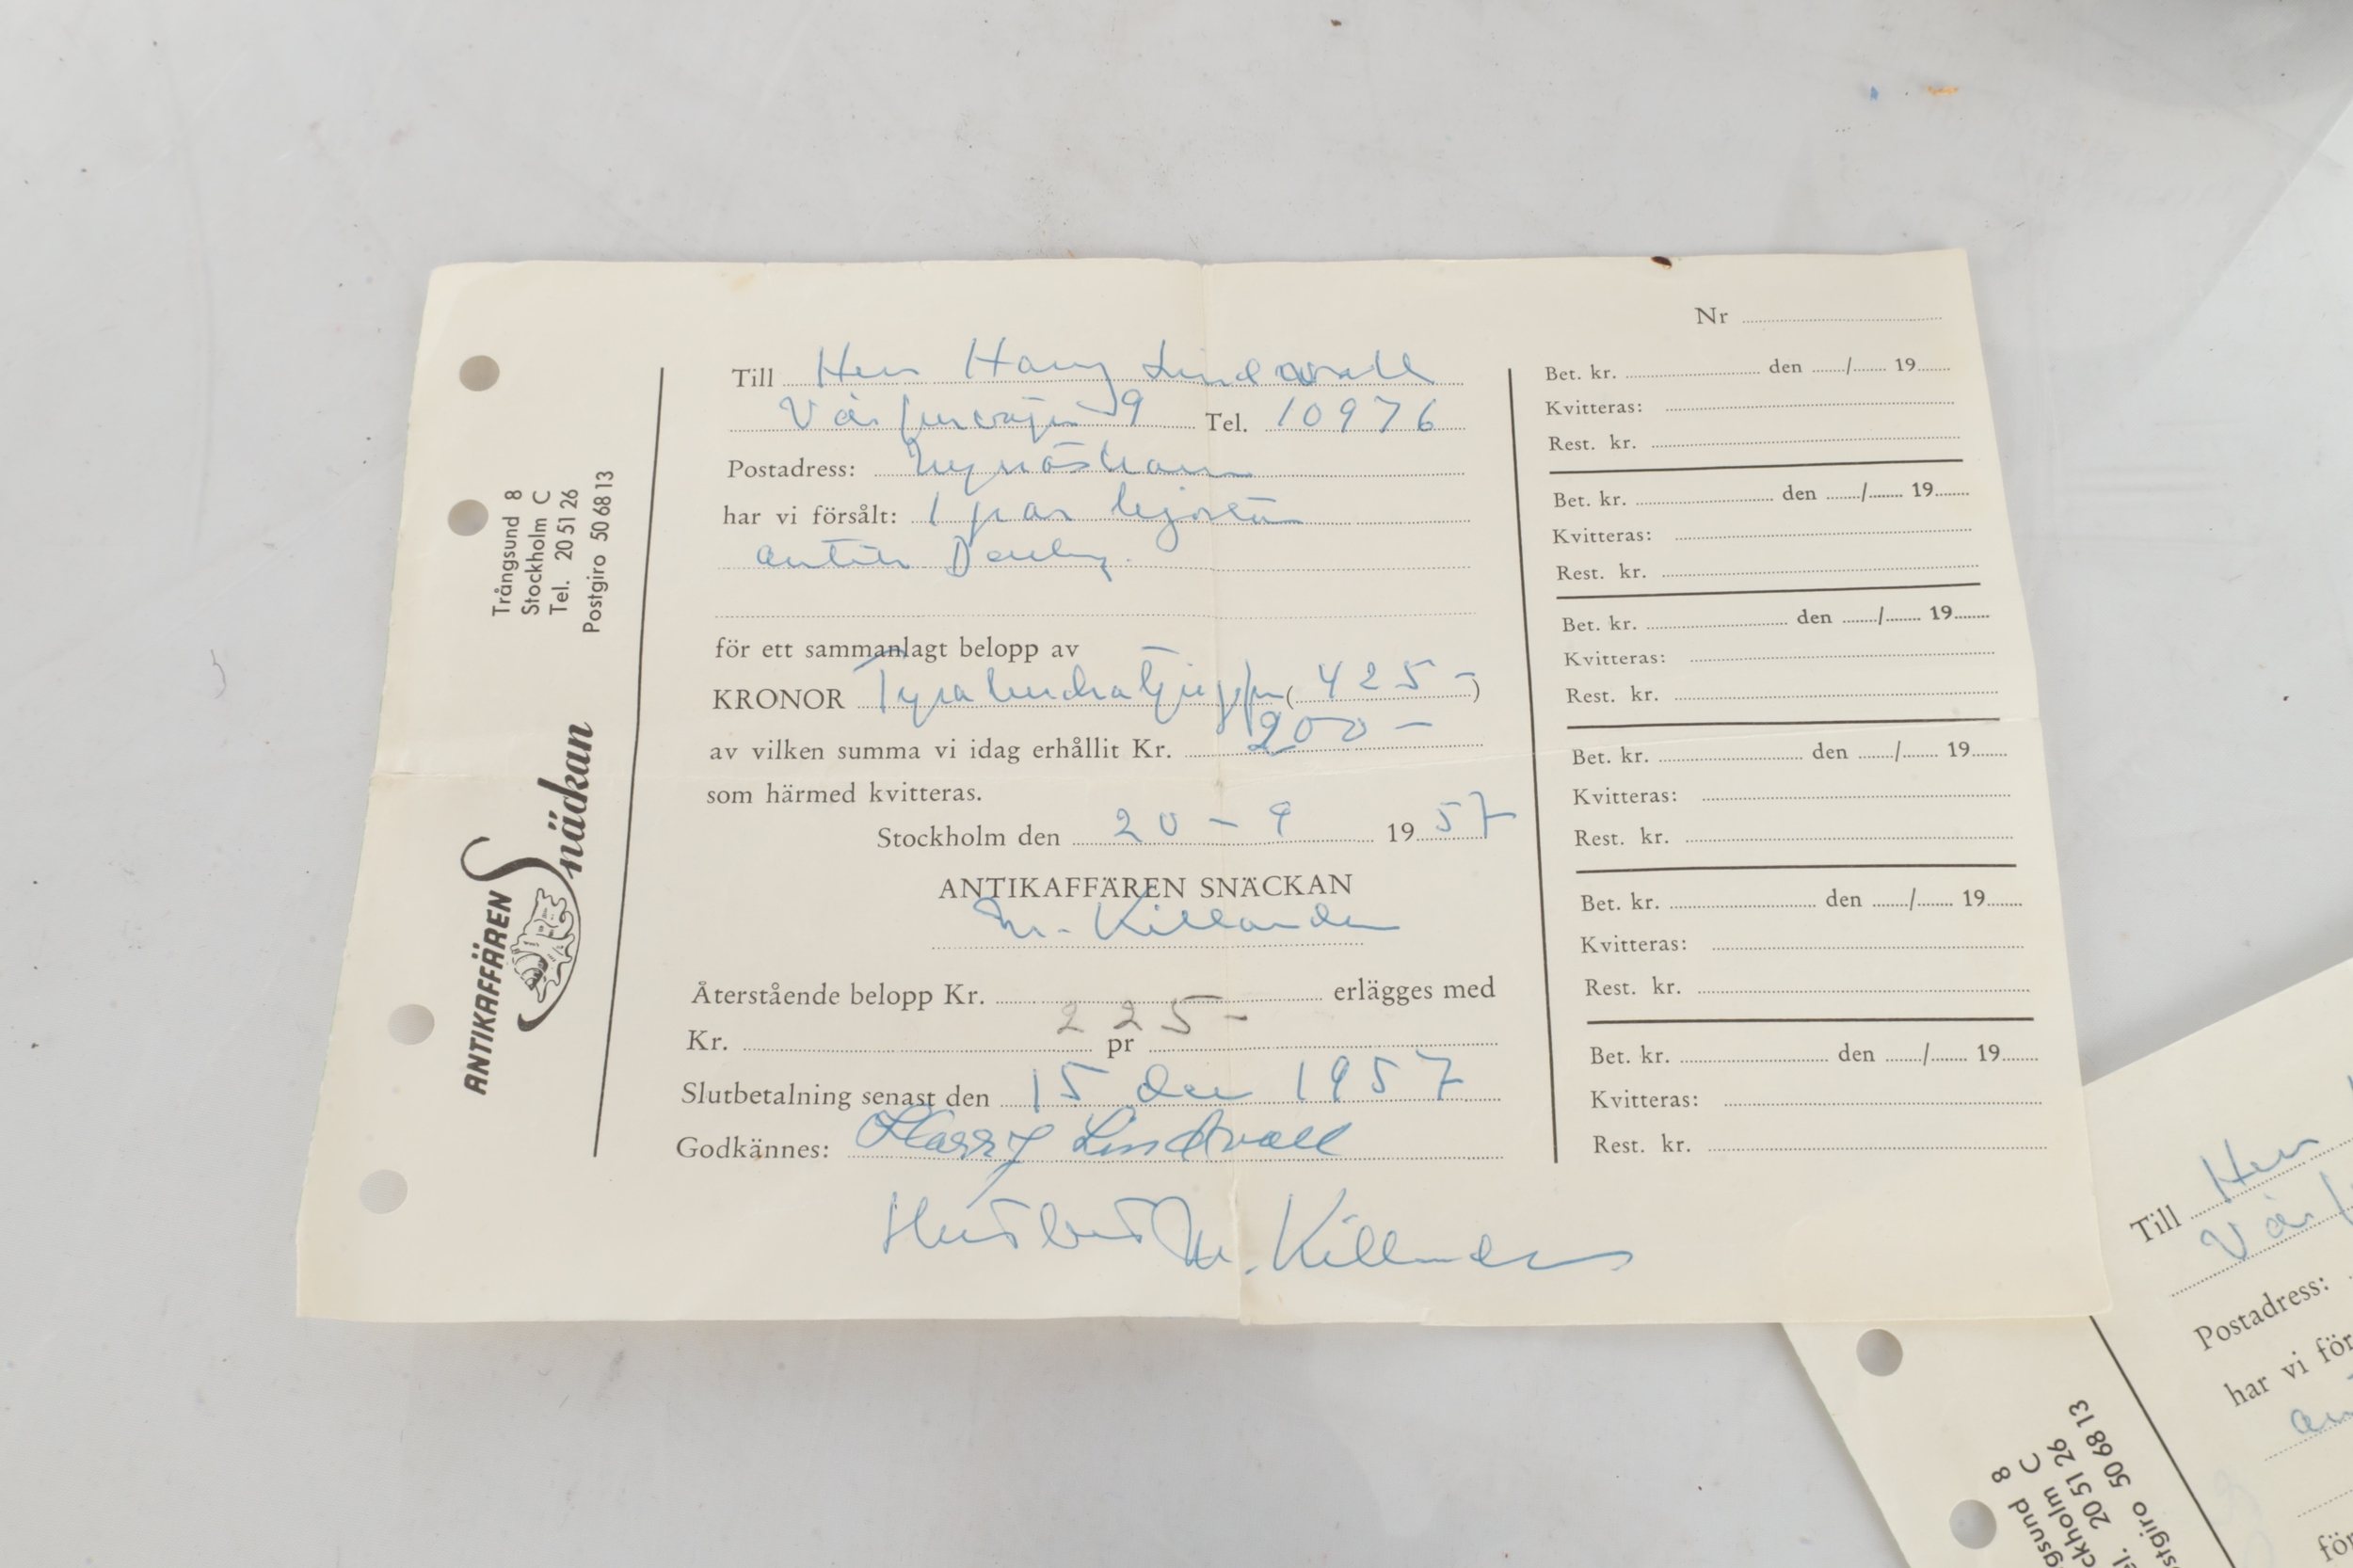 Trångsund 8
Stockholm C
Tel. 20 51 26
Postgiro 50 68 13
ANTIKAFFÄREN Snäckan
Till Herr Harry Lindvall
9 Tel. 10976
Postadress: Nynäshamn
har vi försålt: 1 par
antik Derby.
för ett sammanlagt belopp av
KRONOR Fyrahundratjugofem (425-)
av vilken summa vi idag erhållit Kr. 200-
som härmed kvitteras.
Stockholm den 20-9 1957
ANTIKAFFÄREN SNÄCKAN
M. Killander
Återstående belopp Kr. 225- erlägges med
Kr. pr
Slutbetalning senast den 15 dec 1957
Godkännes: Harry Lindvall
M. Killander
Nr
Bet. kr. den / 19
Kvitteras:
Rest. kr.
Bet. kr. den / 19
Kvitteras:
Rest. kr.
Bet. kr. den / 19
Kvitteras:
Rest. kr.
Bet. kr. den / 19
Kvitteras:
Rest. kr.
Bet. kr. den / 19
Kvitteras:
Rest. kr.
Bet. kr. den / 19
Kvitteras:
Rest. kr.
Till Herr
Postadress:
har vi för
för
gsund 8
ckholm C
el. 20 51 26
stgiro 50 68 13